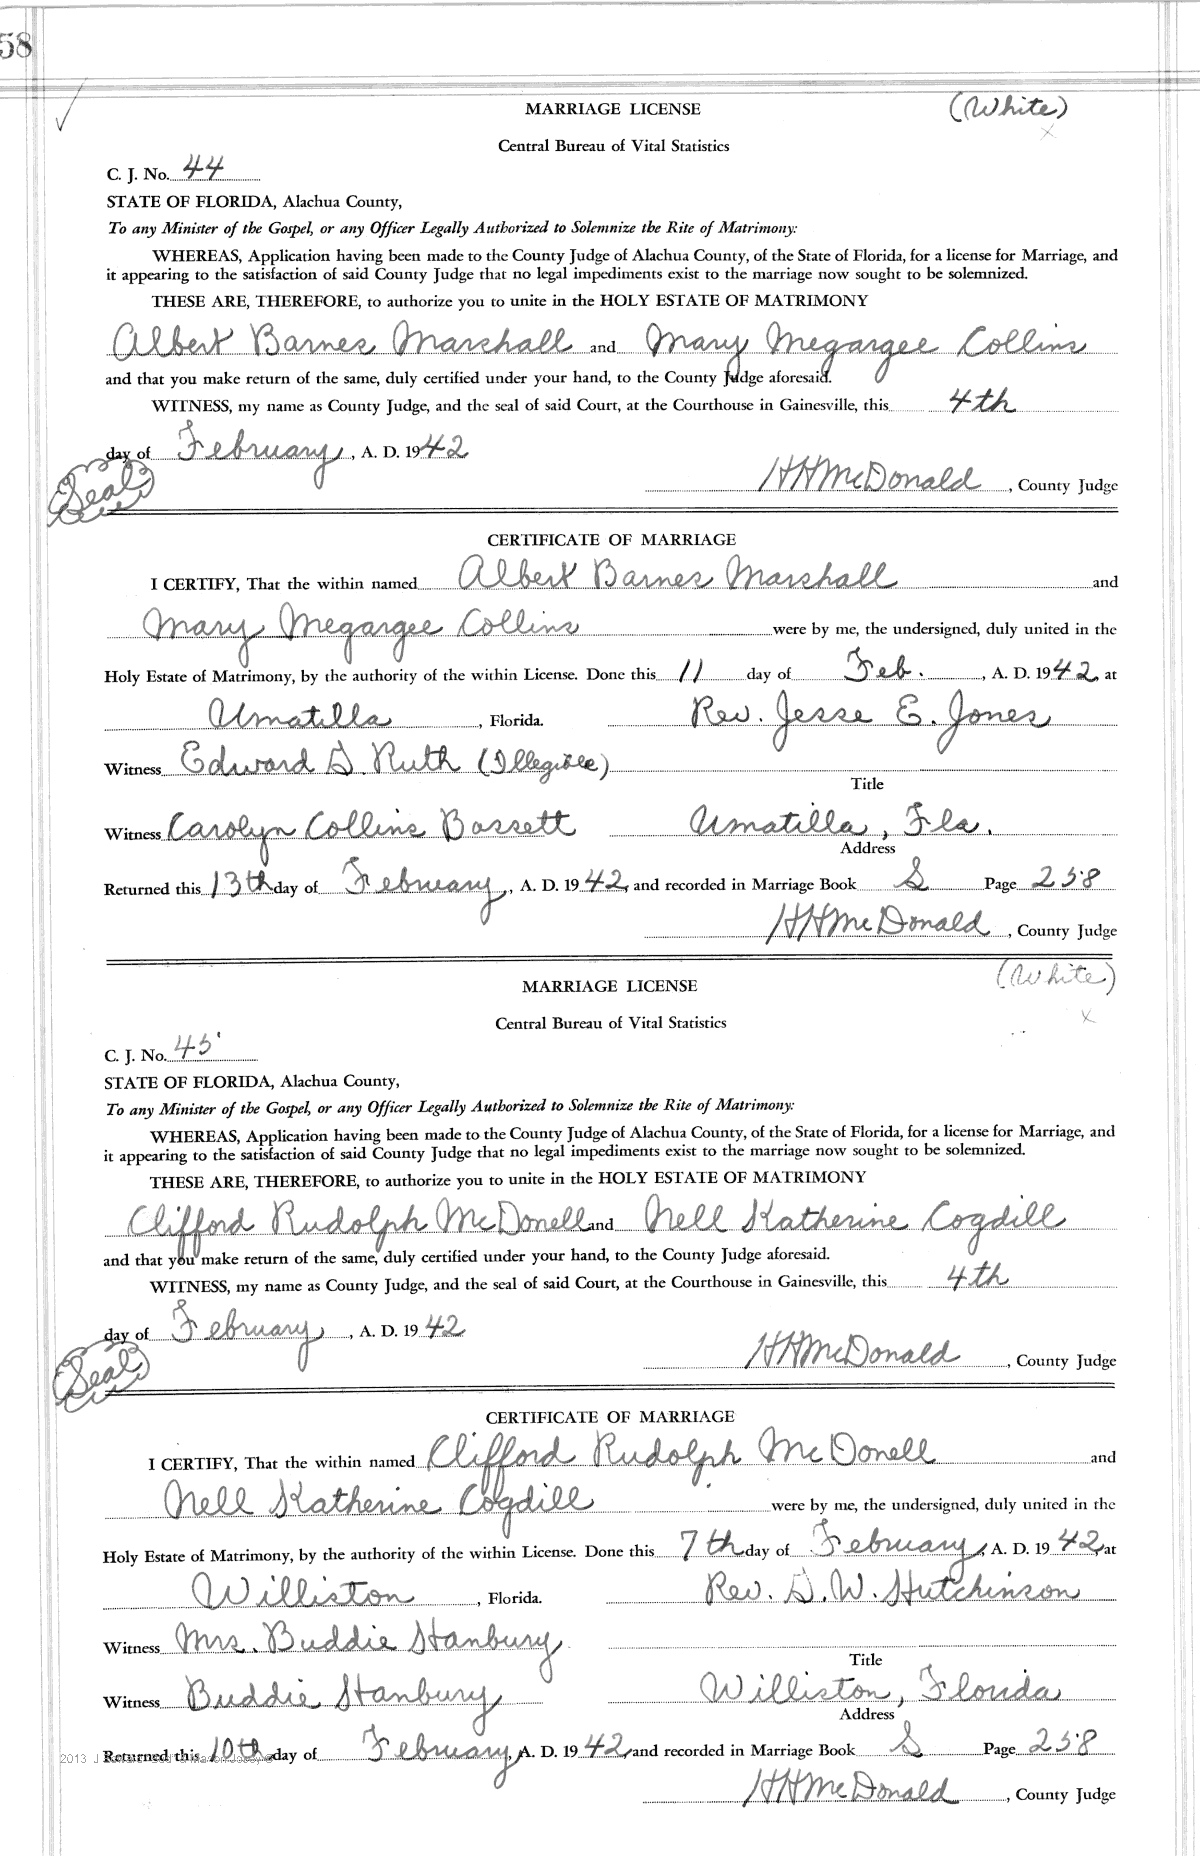 58
MARRIAGE LICENSE (White)
x
Central Bureau of Vital Statistics
C. J. No. 44
STATE OF FLORIDA, Alachua County,
To any Minister of the Gospel, or any Officer Legally Authorized to Solemnize the Rite of Matrimony:
WHEREAS, Application having been made to the County Judge of Alachua County, of the State of Florida, for a license for Marriage, and
it appearing to the satisfaction of said County Judge that no legal impediments exist to the marriage now sought to be solemnized.
THESE ARE, THEREFORE, to authorize you to unite in the HOLY ESTATE OF MATRIMONY
Albert Barnes Marshall and Mary Megargee Collins
and that you make return of the same, duly certified under your hand, to the County Judge aforesaid.
WITNESS, my name as County Judge, and the seal of said Court, at the Courthouse in Gainesville, this 4th
day of February, A. D. 1942
Seal HHMcDonald, County Judge
CERTIFICATE OF MARRIAGE
I CERTIFY, That the within named Albert Barnes Marshall and
Mary Megargee Collins were by me, the undersigned, duly united in the
Holy Estate of Matrimony, by the authority of the within License. Done this 11 day of Feb., A. D. 1942, at
Umatilla, Florida. Rev. Jesse E. Jones
Witness Edward G. Ruth (Illegible)
Title
Witness Carolyn Collins Bassett Umatilla, Fla.
Address
Returned this 13th day of February, A. D. 1942, and recorded in Marriage Book S Page 258
HHMcDonald, County Judge
MARRIAGE LICENSE (White)
x
Central Bureau of Vital Statistics
C. J. No. 45
STATE OF FLORIDA, Alachua County,
To any Minister of the Gospel, or any Officer Legally Authorized to Solemnize the Rite of Matrimony:
WHEREAS, Application having been made to the County Judge of Alachua County, of the State of Florida, for a license for Marriage, and
it appearing to the satisfaction of said County Judge that no legal impediments exist to the marriage now sought to be solemnized.
THESE ARE, THEREFORE, to authorize you to unite in the HOLY ESTATE OF MATRIMONY
Clifford Rudolph McDonell and Nell Katherine Cogdill
and that you make return of the same, duly certified under your hand, to the County Judge aforesaid.
WITNESS, my name as County Judge, and the seal of said Court, at the Courthouse in Gainesville, this 4th
day of February, A. D. 1942
Seal HHMcDonald, County Judge
CERTIFICATE OF MARRIAGE
I CERTIFY, That the within named Clifford Rudolph McDonell and
Nell Katherine Cogdill were by me, the undersigned, duly united in the
Holy Estate of Matrimony, by the authority of the within License. Done this 7th day of February, A. D. 1942, at
Williston, Florida. Rev. D. W. Hutchinson
Witness Mrs. Buddie Stanbury
Title
Witness Buddie Stanbury Williston, Florida
Address
2013
Returned this 10th day of February, A. D. 1942, and recorded in Marriage Book S Page 258
HHMcDonald, County Judge